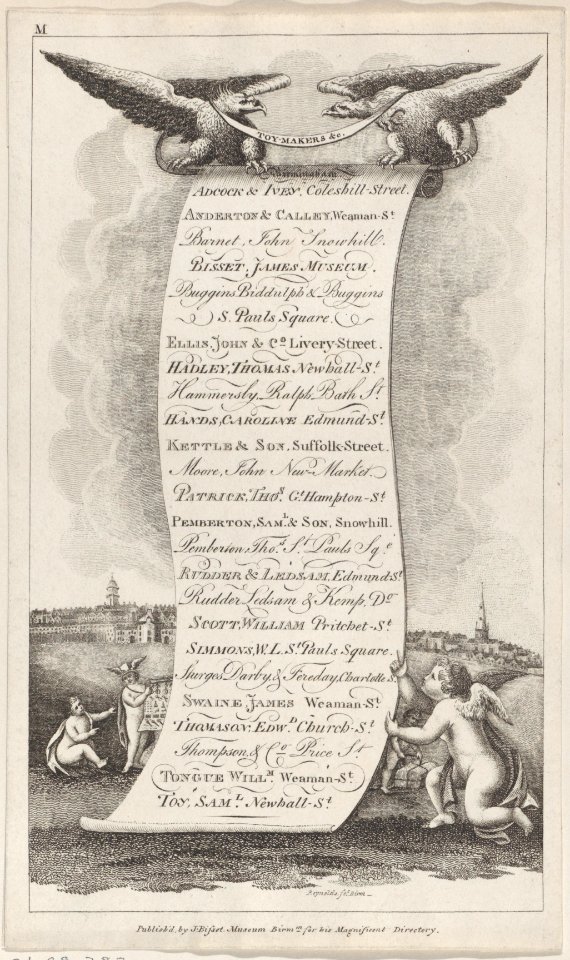 M
TOY-MAKERS &c.
Birmingham
ADCOCK & IVEY, Coleshill-Street.
ANDERTON & CALLEY, Weaman-St
Barnet, John Snowhill.
BISSET, JAMES MUSEUM.
Buggins Biddulph & Buggins
S. Pauls Square.
ELLIS, JOHN & Co Livery-Street.
HADLEY, THOMAS Newhall-St
Hammersly, Ralph, Bath St
HANDS, CAROLINE Edmund-St
KETTLE & SON, Suffolk-Street.
Moore, John New-Market.
PATRICK, THOs Gt Hampton-St
PEMBERTON, SAML & SON, Snowhill.
Pemberton, Thos St Pauls Sqe
RUDDER & LEDSAM, Edmund-St
Rudder Ledsam & Kemp, Do
SCOTT, WILLIAM Pritchet-St
SIMMONS, W. L. St Pauls Square.
Sturges Darby, & Fereday, Charlotte S.
SWAINE, JAMES Weaman-St
THOMASON, EDWD Church-St
Thompson, & Co Price St
TONGUE WILLM Weaman-St
TOY, SAML Newhall-St
Reynolds sc. Birm
Publish'd by J. Bisset Museum Birmm for his Magnificent Directory.